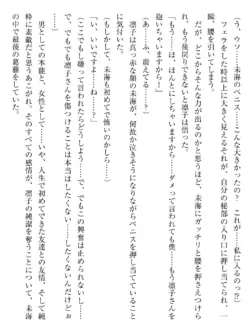 (う、うそっ？　未海のペニス……こんな大きかったの？　これが……私に入るのっ!?)
フェラをした時以上に大きく見えるそれが、自分の秘部の入り口に押し当てられた
瞬、腰を引いてしまう。
だが、どこからそんな力が出るのかと思うほど、未海にガッチリと腰を押さえつけら
れ、もう後戻りできないと凛子は悟った。
「もう……ほ、ほんとにしちゃいますから……ダメって言われても僕……もう凛子さんを
抱いちゃいますから」
(あっ……ふ、震えてる……？)
凛子は真っ赤な顔の未海が、何故か泣きそうになりながらペニスを押し当てていること
に気付いた。
(もしかして、未海も初めてで怖いのかしら……)
「い、いいですよ……ね？」
(ここでもし嫌って言われたらどうしよう……でも、この興奮は止められない……)
(でも、ここでも凛子さんを傷つけることは本当はしたくない……したくないんだけどぉ
男としての本能と、女性として……いや、人生で初めてできた友達との友情、そして純
粋に素敵だと思うあこがれ、そのすべての感情が、凛子の純潔を奪うことについて、未海
の中で最後の葛藤をして